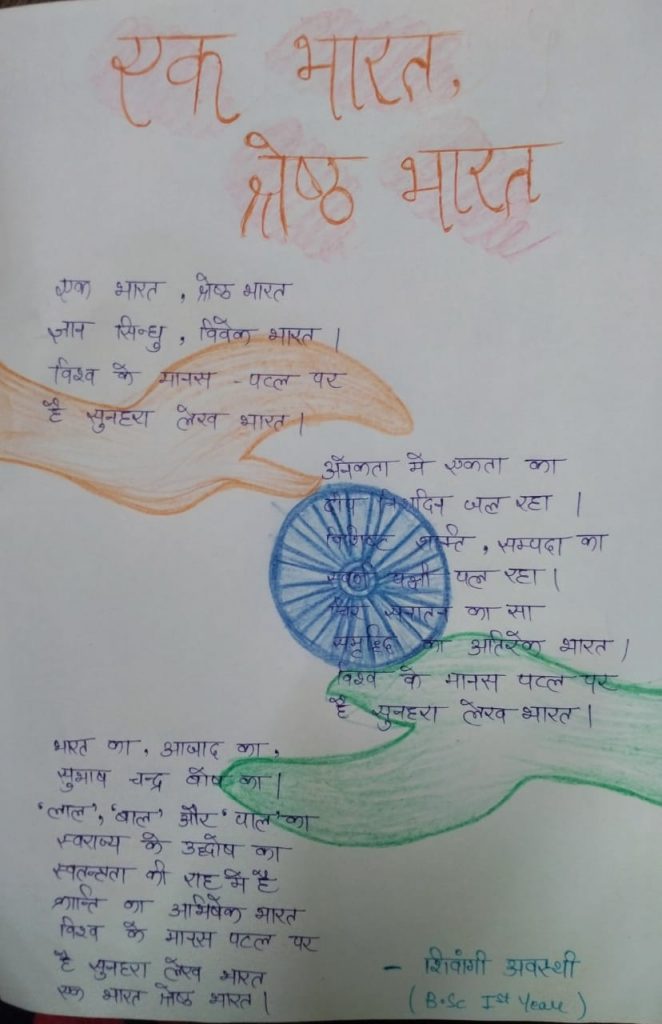 एक भारत,
श्रेष्ठ भारत
एक भारत, श्रेष्ठ भारत
ज्ञान सिन्धु, विवेक भारत।
विश्व के मानस-पटल पर
है सुनहरा लेख भारत।
अनेकता में एकता का
दीप निशदिन जल रहा।
विशिष्ट शान्ति, सम्पदा का
स्वर्ण पक्षी पल रहा।
चिर सनातन का सा
समृद्धि का अतिरेक भारत।
विश्व के मानस पटल पर
है सुनहरा लेख भारत।
भारत का, आजाद का,
सुभाष चन्द्र बोष का।
'लाल', 'बाल' और 'पाल' का
स्वराज्य के उद्घोष का
स्वतन्त्रता की राह में है
क्रान्ति का अभिषेक भारत
विश्व के मानस पटल पर
है सुनहरा लेख भारत
एक भारत श्रेष्ठ भारत।
- शिवांगी अवस्थी
(B.Sc Ist Year)